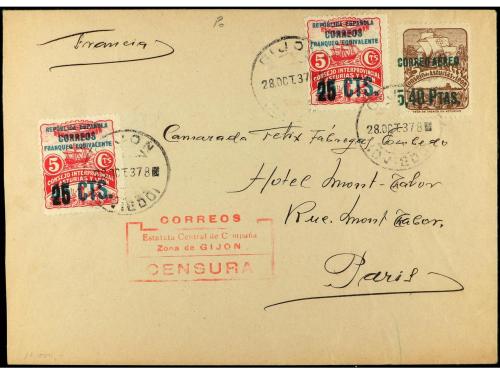 Francia
GIJON
28.OCT.37
REPUBLICA ESPAÑOLA
CORREOS
FRANQUEO EQUIVALENTE
5 Cts
CONSEJO INTERPROVINCIAL
ASTURIAS Y
25 CTS.
CORREO AEREO
5,40 Ptas.
28.OCT.37 8
REPUBLICA ESPAÑOLA
CORREOS
FRANQUEO EQUIVALENTE
5 Cts
CONSEJO INTERPROVINCIAL
ASTURIAS Y
25 CTS.
GIJON
OCT.37 8
Camarada Felix Fábregas
Hotel Mont-Tabor
Rue Mont Tabor,
Paris
CORREOS
Estafeta Central de Campaña
Zona de GIJON
CENSURA